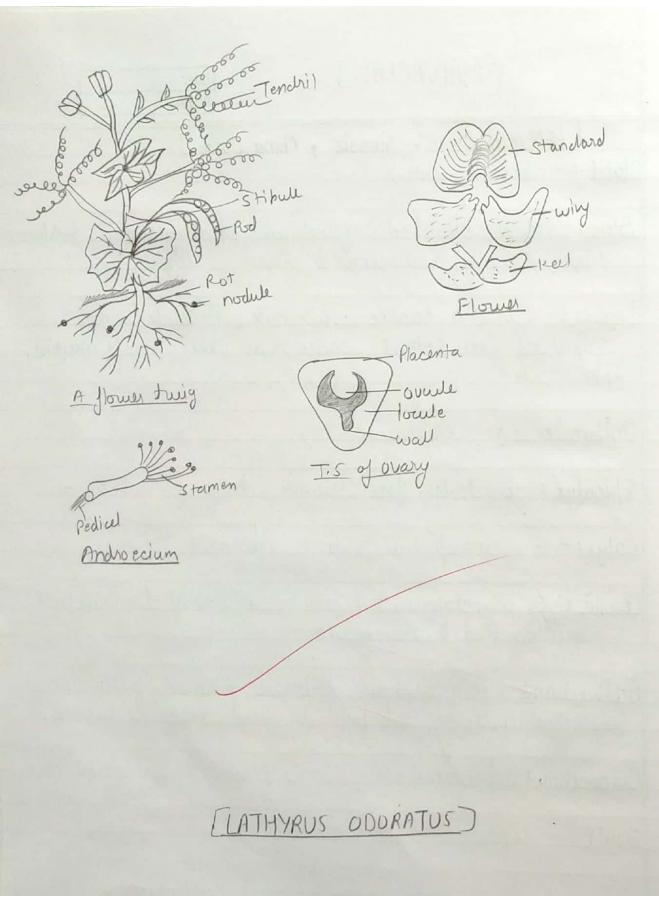 Tendril
Stibule
Pod
Rot
nodule
A flower twig
Standard
wing
keel
Flower
Placenta
ovule
locule
wall
T.S of ovary
Stamen
Pedicel
Androecium
[LATHYRUS ODORATUS]